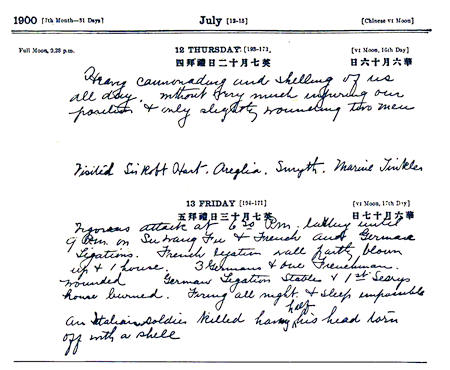 1900 [7th Month—31 Days] July [12-13] [Chinese VI Moon]
Full Moon, 9.23 p.m. 12 THURSDAY [193-171] [VI Moon, 16th Day]
四拜禮日二十月七英 日六十月六華
Heavy cannonading and shelling of us
all day, without very much injuring our
position & only slightly wounding two men
Visited Sir Robt Hart. Smyth. Marine
13 FRIDAY [194-171] [VI Moon, 17th Day]
五拜禮日三十月七英 日七十月六華
Vigorous attack at 6 P.M. lasting until
9 P.M. on Su Wang Fu & French and German
Legations. French legation wall partly blown
up & 1 house. 3 Germans & one Frenchman
wounded German Legation Stables & 1st Secy's
house burned. Firing all night & sleep impossible
An Italian soldier killed having half his head torn
off with a shell